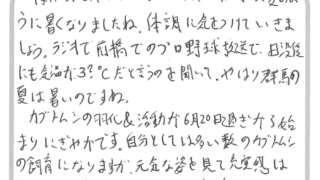 うに暑くなりましたね、体調に気をつけていきま
しょう。ラジオで前橋でのプロ野球放送で、日没後
にも気温が3?℃だと言うのを聞いて、やはり群馬の
夏は暑いのですね。
カブトムシの羽化&活動が6月20日過ぎから始
まりにぎやかです。自分としては多い数のカブトムシ
の飼育になりますが、元気な姿を見て充実感は